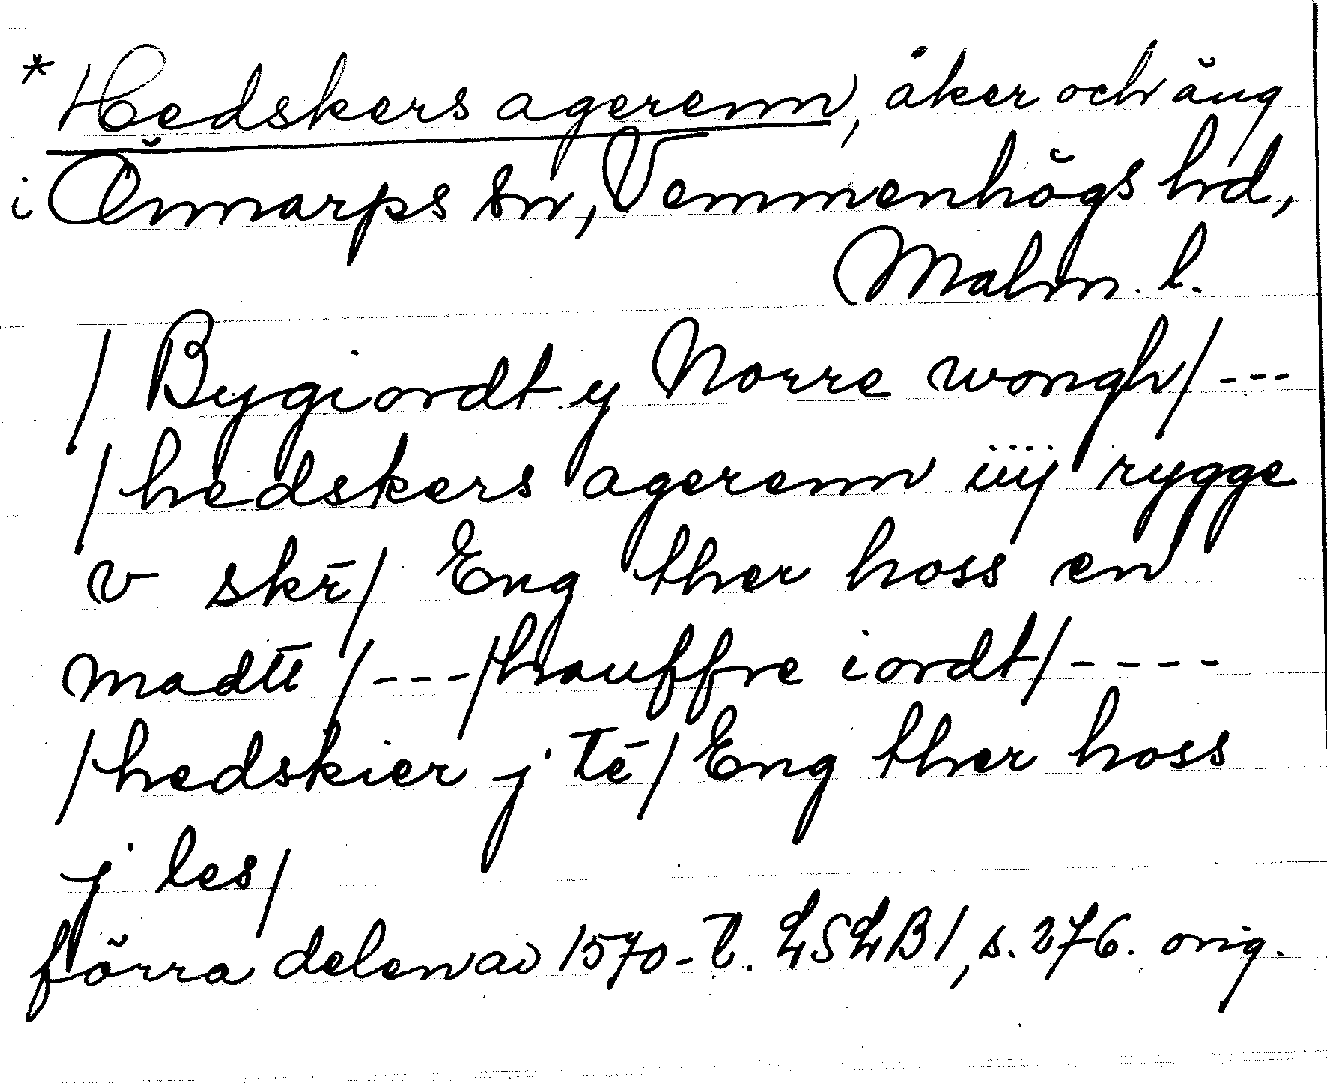 * Hedskers agerenn, åker och äng
i Önnarps sn, Vemmenhögs hd,
Malm. l.
/ Bygiordt y Norre wongh/ ---
/ hedskers agerenn iiij rygge
v skr̄/ Eng ther hoss en
madtt /---/ hauffre iordt/ ----
/ hedskier j tē/ Eng ther hoss
j les/
förra delen av 1570-t. LSLB 1, s. 276. orig.